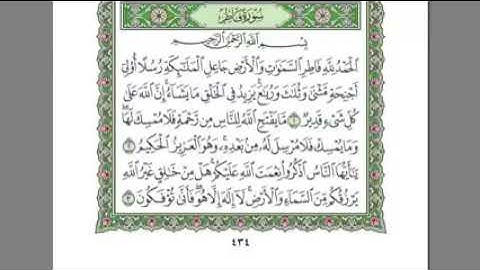 سُورَةُ فَاطِرٍ
بِسْمِ اللَّهِ الرَّحْمَٰنِ الرَّحِيمِ
الْحَمْدُ لِلَّهِ فَاطِرِ السَّمَاوَاتِ وَالْأَرْضِ جَاعِلِ الْمَلَائِكَةِ رُسُلًا أُولِي
أَجْنِحَةٍ مَّثْنَىٰ وَثُلَاثَ وَرُبَاعَ ۚ يَزِيدُ فِي الْخَلْقِ مَا يَشَاءُ ۚ إِنَّ اللَّهَ عَلَىٰ
كُلِّ شَيْءٍ قَدِيرٌ ﴿١﴾ مَّا يَفْتَحِ اللَّهُ لِلنَّاسِ مِن رَّحْمَةٍ فَلَا مُمْسِكَ لَهَا ۖ
وَمَا يُمْسِكْ فَلَا مُرْسِلَ لَهُ مِن بَعْدِهِ ۚ وَهُوَ الْعَزِيزُ الْحَكِيمُ ﴿٢﴾
يَا أَيُّهَا النَّاسُ اذْكُرُوا نِعْمَتَ اللَّهِ عَلَيْكُمْ ۚ هَلْ مِنْ خَالِقٍ غَيْرُ اللَّهِ
يَرْزُقُكُم مِّنَ السَّمَاءِ وَالْأَرْضِ ۚ لَا إِلَٰهَ إِلَّا هُوَ ۖ فَأَنَّىٰ تُؤْفَكُونَ ﴿٣﴾
٤٣٤